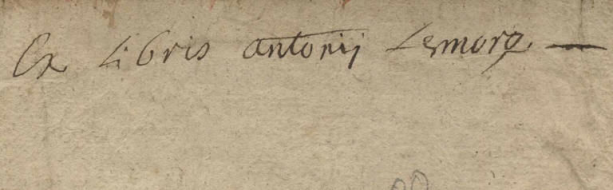 Ex Libris antonij Lemorg